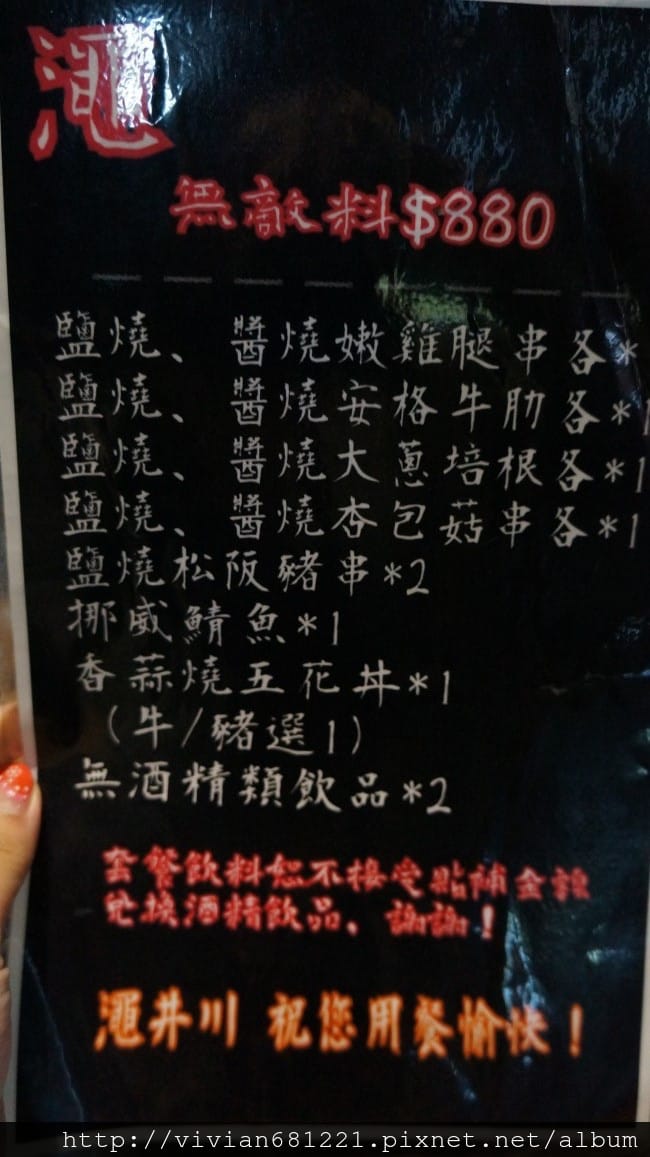 澠
無敵料$880
鹽燒、醬燒嫩雞腿串各*
鹽燒、醬燒安格牛肋各*1
鹽燒、醬燒大蔥培根各*1
鹽燒、醬燒杏包菇串各*1
鹽燒松阪豬串*2
挪威鯖魚*1
香蒜燒五花丼*1
(牛/豬選1)
無酒精類飲品*2
套餐飲料恕不接受貼補金額
兌換酒精飲品、謝謝!
澠井川 祝您用餐愉快!
http://vivian681221.pixnet.net/album